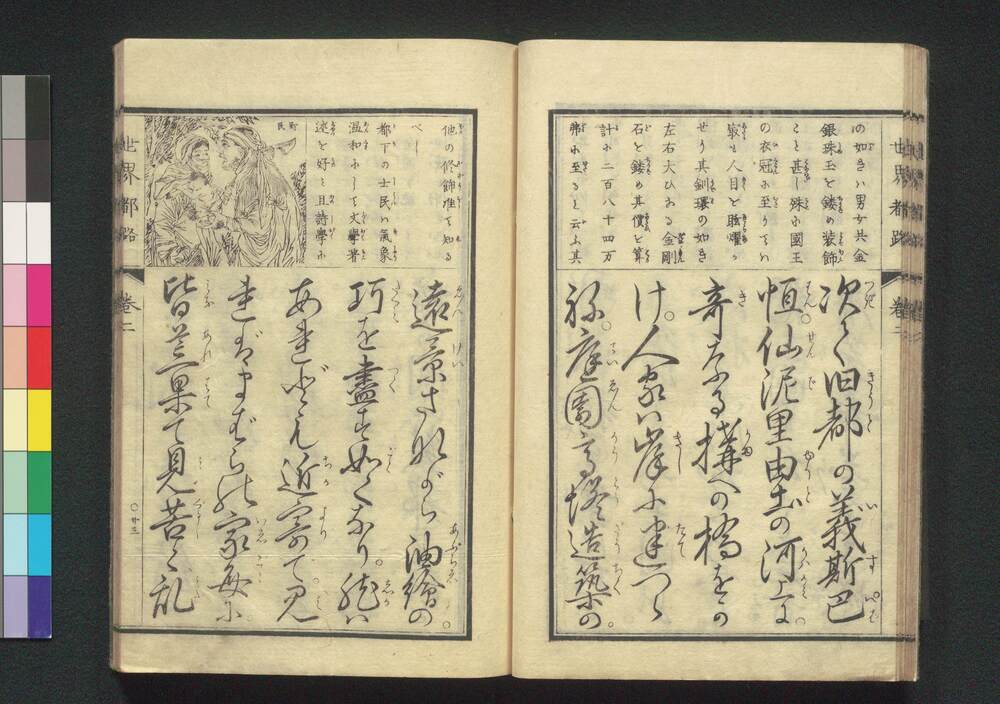 世界都路
卷二
の如きハ男女共金
銀珠玉を鏤め装飾
こと甚し殊に國王
の衣冠に至りてハ
寂も人目を眩燿
せり其釧環の如き
左右大ひなる金剛
石を鏤め其價を算
計に二百八十四万
弗に至ると云ふ其
次ぐ旧都の義斯巴
恒仙泥里由土の河上に
奇なる搆への橋をか
け。人家ハ岸に建つら
ね。庭園高塔造築の。
他の修飾推て知る
べし
都下の士民ハ氣象
温和にして文學著
述を好ミ且詩學に
町民
遠景さながら油繪の。
巧を盡す如くなり。然ハ
あれども近寄て見
ればまばらの家毎に
皆荒果て見苦く乱
世界都路
卷二
○廿三